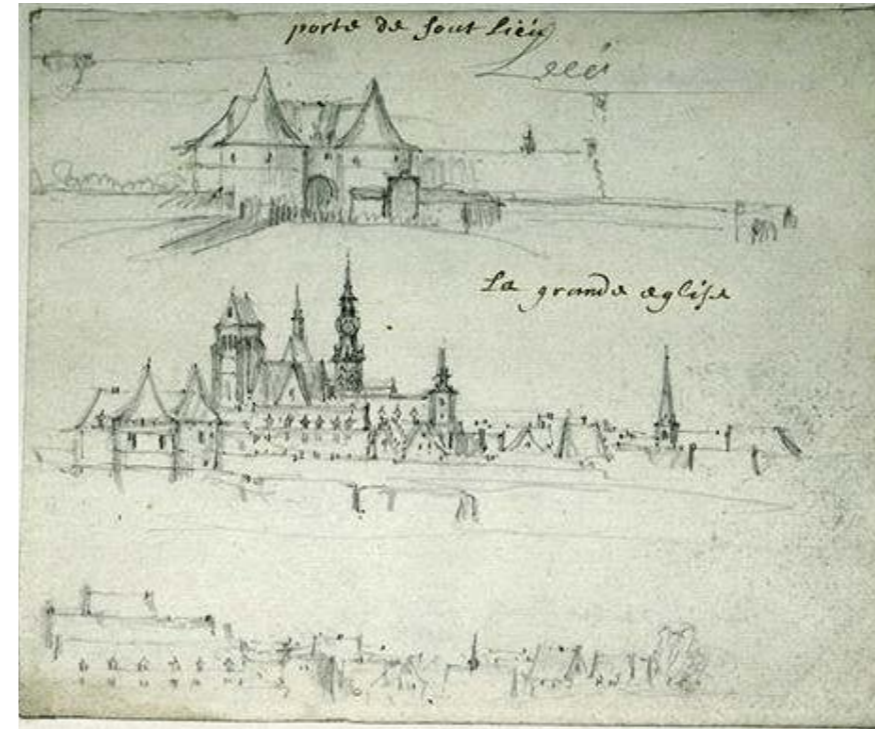 porte de sout liéu
La grande eglise